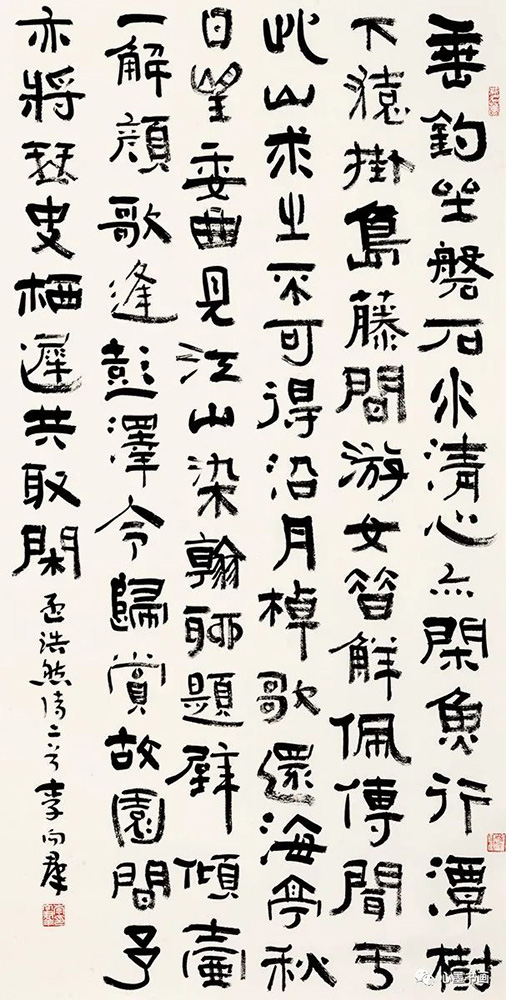 垂釣坐磐石水清心亦閑魚行潭樹
下猿掛島藤間游女昔解佩傳聞于
此山求之不可得沿月棹歌還海亭秋
日望委曲見江山染翰聊題壁傾壺
一解顔歌逢彭澤令歸賞故園間予
亦將琴史栖遲共取閑
孟浩然诗二首 李向群